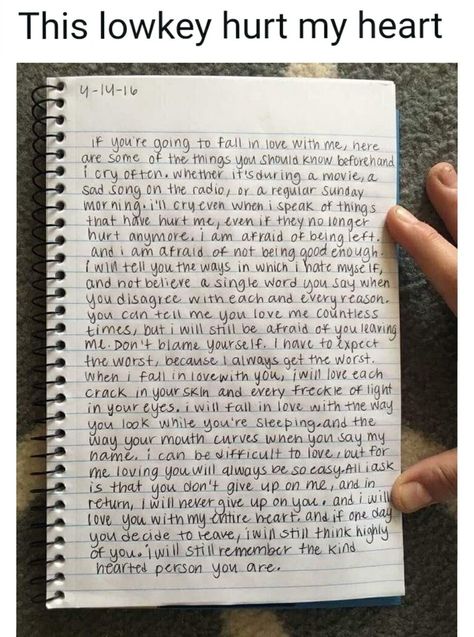 This lowkey hurt my heart
4-14-16
if you're going to fall in love with me, here
are some of the things you should know beforehand
i cry often. whether it's during a movie, a
sad song on the radio, or a regular sunday
morning. i'll cry even when i speak of things
that have hurt me, even if they no longer
hurt anymore. i am afraid of being left.
and i am afraid of not being good enough.
i will tell you the ways in which i hate myself,
and not believe a single word you say when
you disagree with each and every reason.
you can tell me you love me countless
times, but i will still be afraid of you leaving
me. Don't blame yourself. I have to expect
the worst, because I always get the worst.
when i fall in love with you, i will love each
crack in your skin and every freckle of light
in your eyes. i will fall in love with the way
you look while you're sleeping. and the
way your mouth curves when you say my
name. i can be difficult to love, but for
me loving you will always be so easy. All i ask
is that you don't give up on me, and in
return, I will never give up on you. and i will
love you with my entire heart. and if one day
you decide to leave, i will still think highly
of you. i will still remember the kind
hearted person you are.